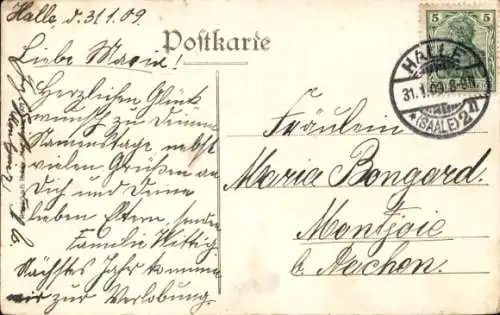 Halle, d. 31.1.09.
Postkarte
Liebe Marie!
Herzlichen Glück
wunsch zu Deinem
Namenstage nebst
vielen Grüßen an
Dich und Deine
lieben Eltern, sendet
Familie Wittig
Nächstes Jahr komme
wir zur Verlobung.
5 5
HALLE
31.1.09. 8-9N.
*(SAALE) 2
Fräulein
Maria Bongard.
Montjoie
b. Aachen.